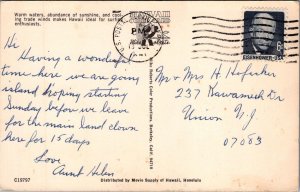 Warm waters, abundance of sunshine, and cool-
ing trade winds makes Hawaii ideal for surfing
enthusiasts.
HAWAII
PM
EISENHOWER·USA
6c
Hi
Having a wonderful
time here we are going
island hopping starting
Sunday before we leave
for the main land clown
here for 15 days
Love
Aunt Helen
Mr & Mrs H Hofacker
237
Union N.J
07083
C19797
Distributed by Movie Supply of Hawaii, Honolulu
Mike Roberts Color Productions, Berkeley, Calif. 94710